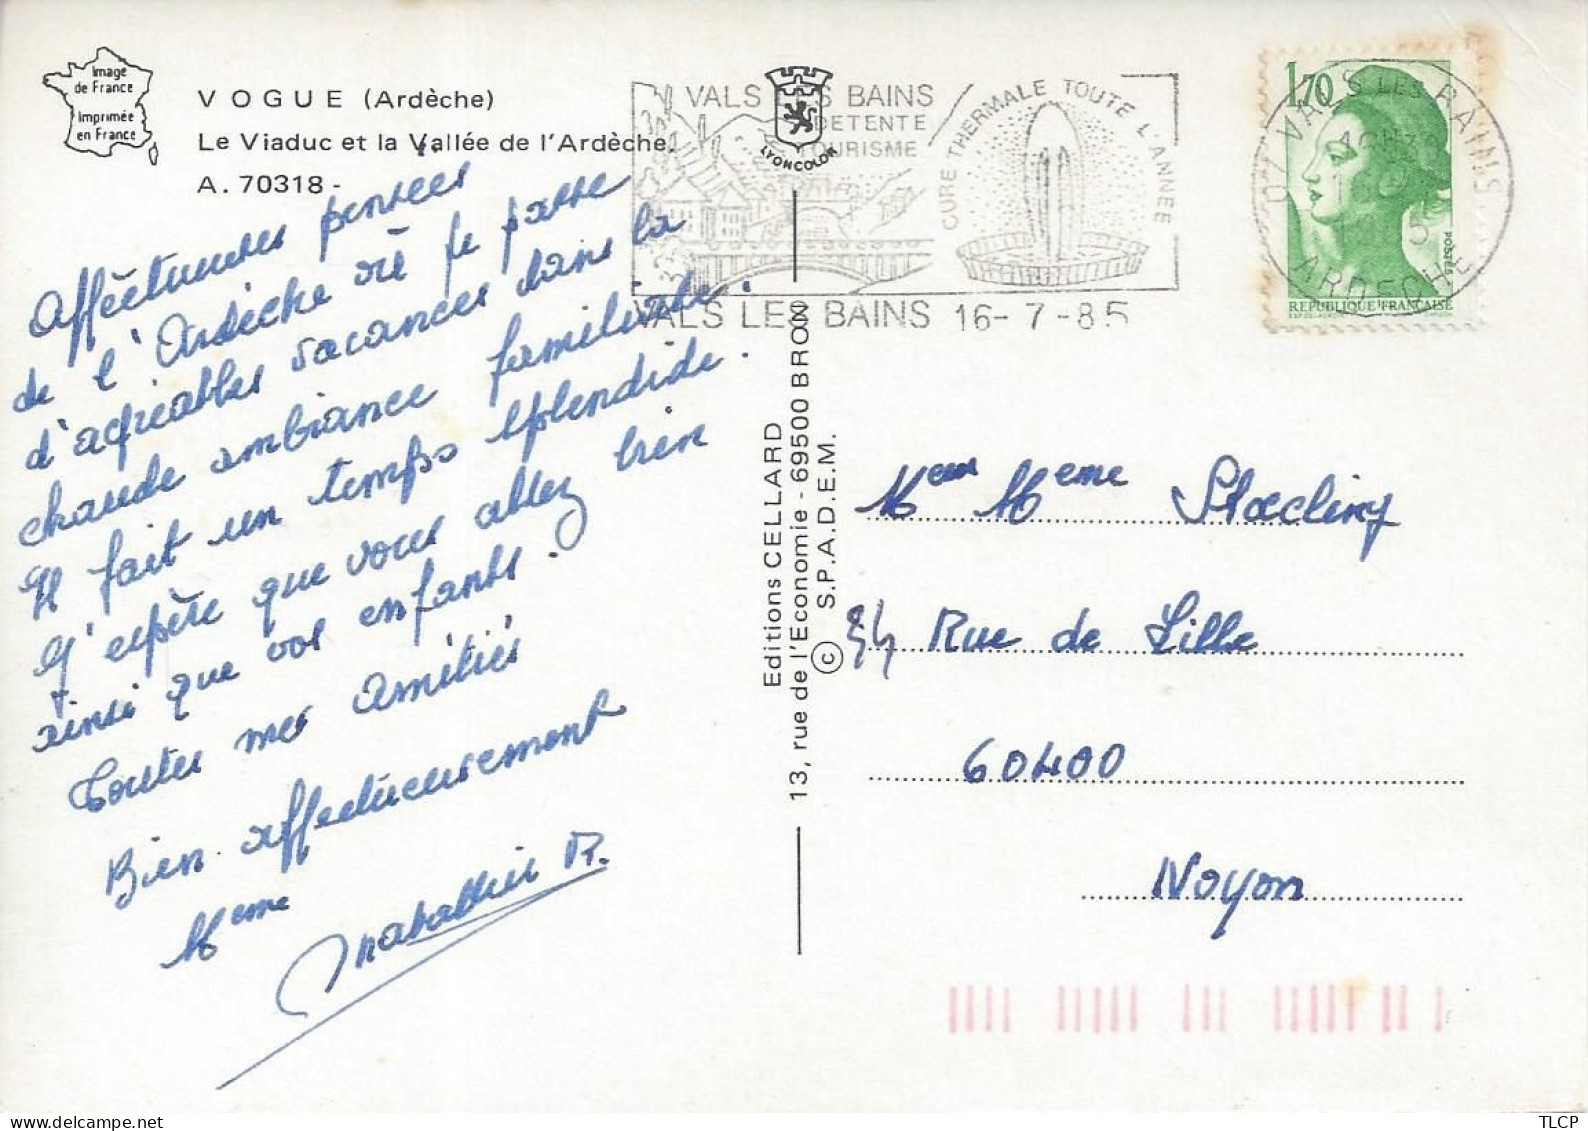 Image
de France
Imprimée
en France
VOGUE (Ardèche)
Le Viaduc et la Vallée de l'Ardèche.
A. 70318 -
VALS LES BAINS
DETENTE
TOURISME
CURE THERMALE TOUTE L'ANNEE
LYONCOLOR
VALS LES BAINS 16-7-85
1,70
POSTES
REPUBLIQUE FRANÇAISE
07 VALS LES BAINS
ARDECHE
Affectueuses pensées
de l'Ardèche où je passe
d'agréables vacances dans la
chaude ambiance familiale.
Il fait un temps splendide.
J'espère que vous allez bien
ainsi que vos enfants.
Toutes mes amitiés
Bien affectueusement
Meme
R.
Editions CELLARD
13, rue de l'Economie - 69500 BRON
© S.P.A.D.E.M.
Meur Meme
Rue de Lille
60400
Noyon
TLCP